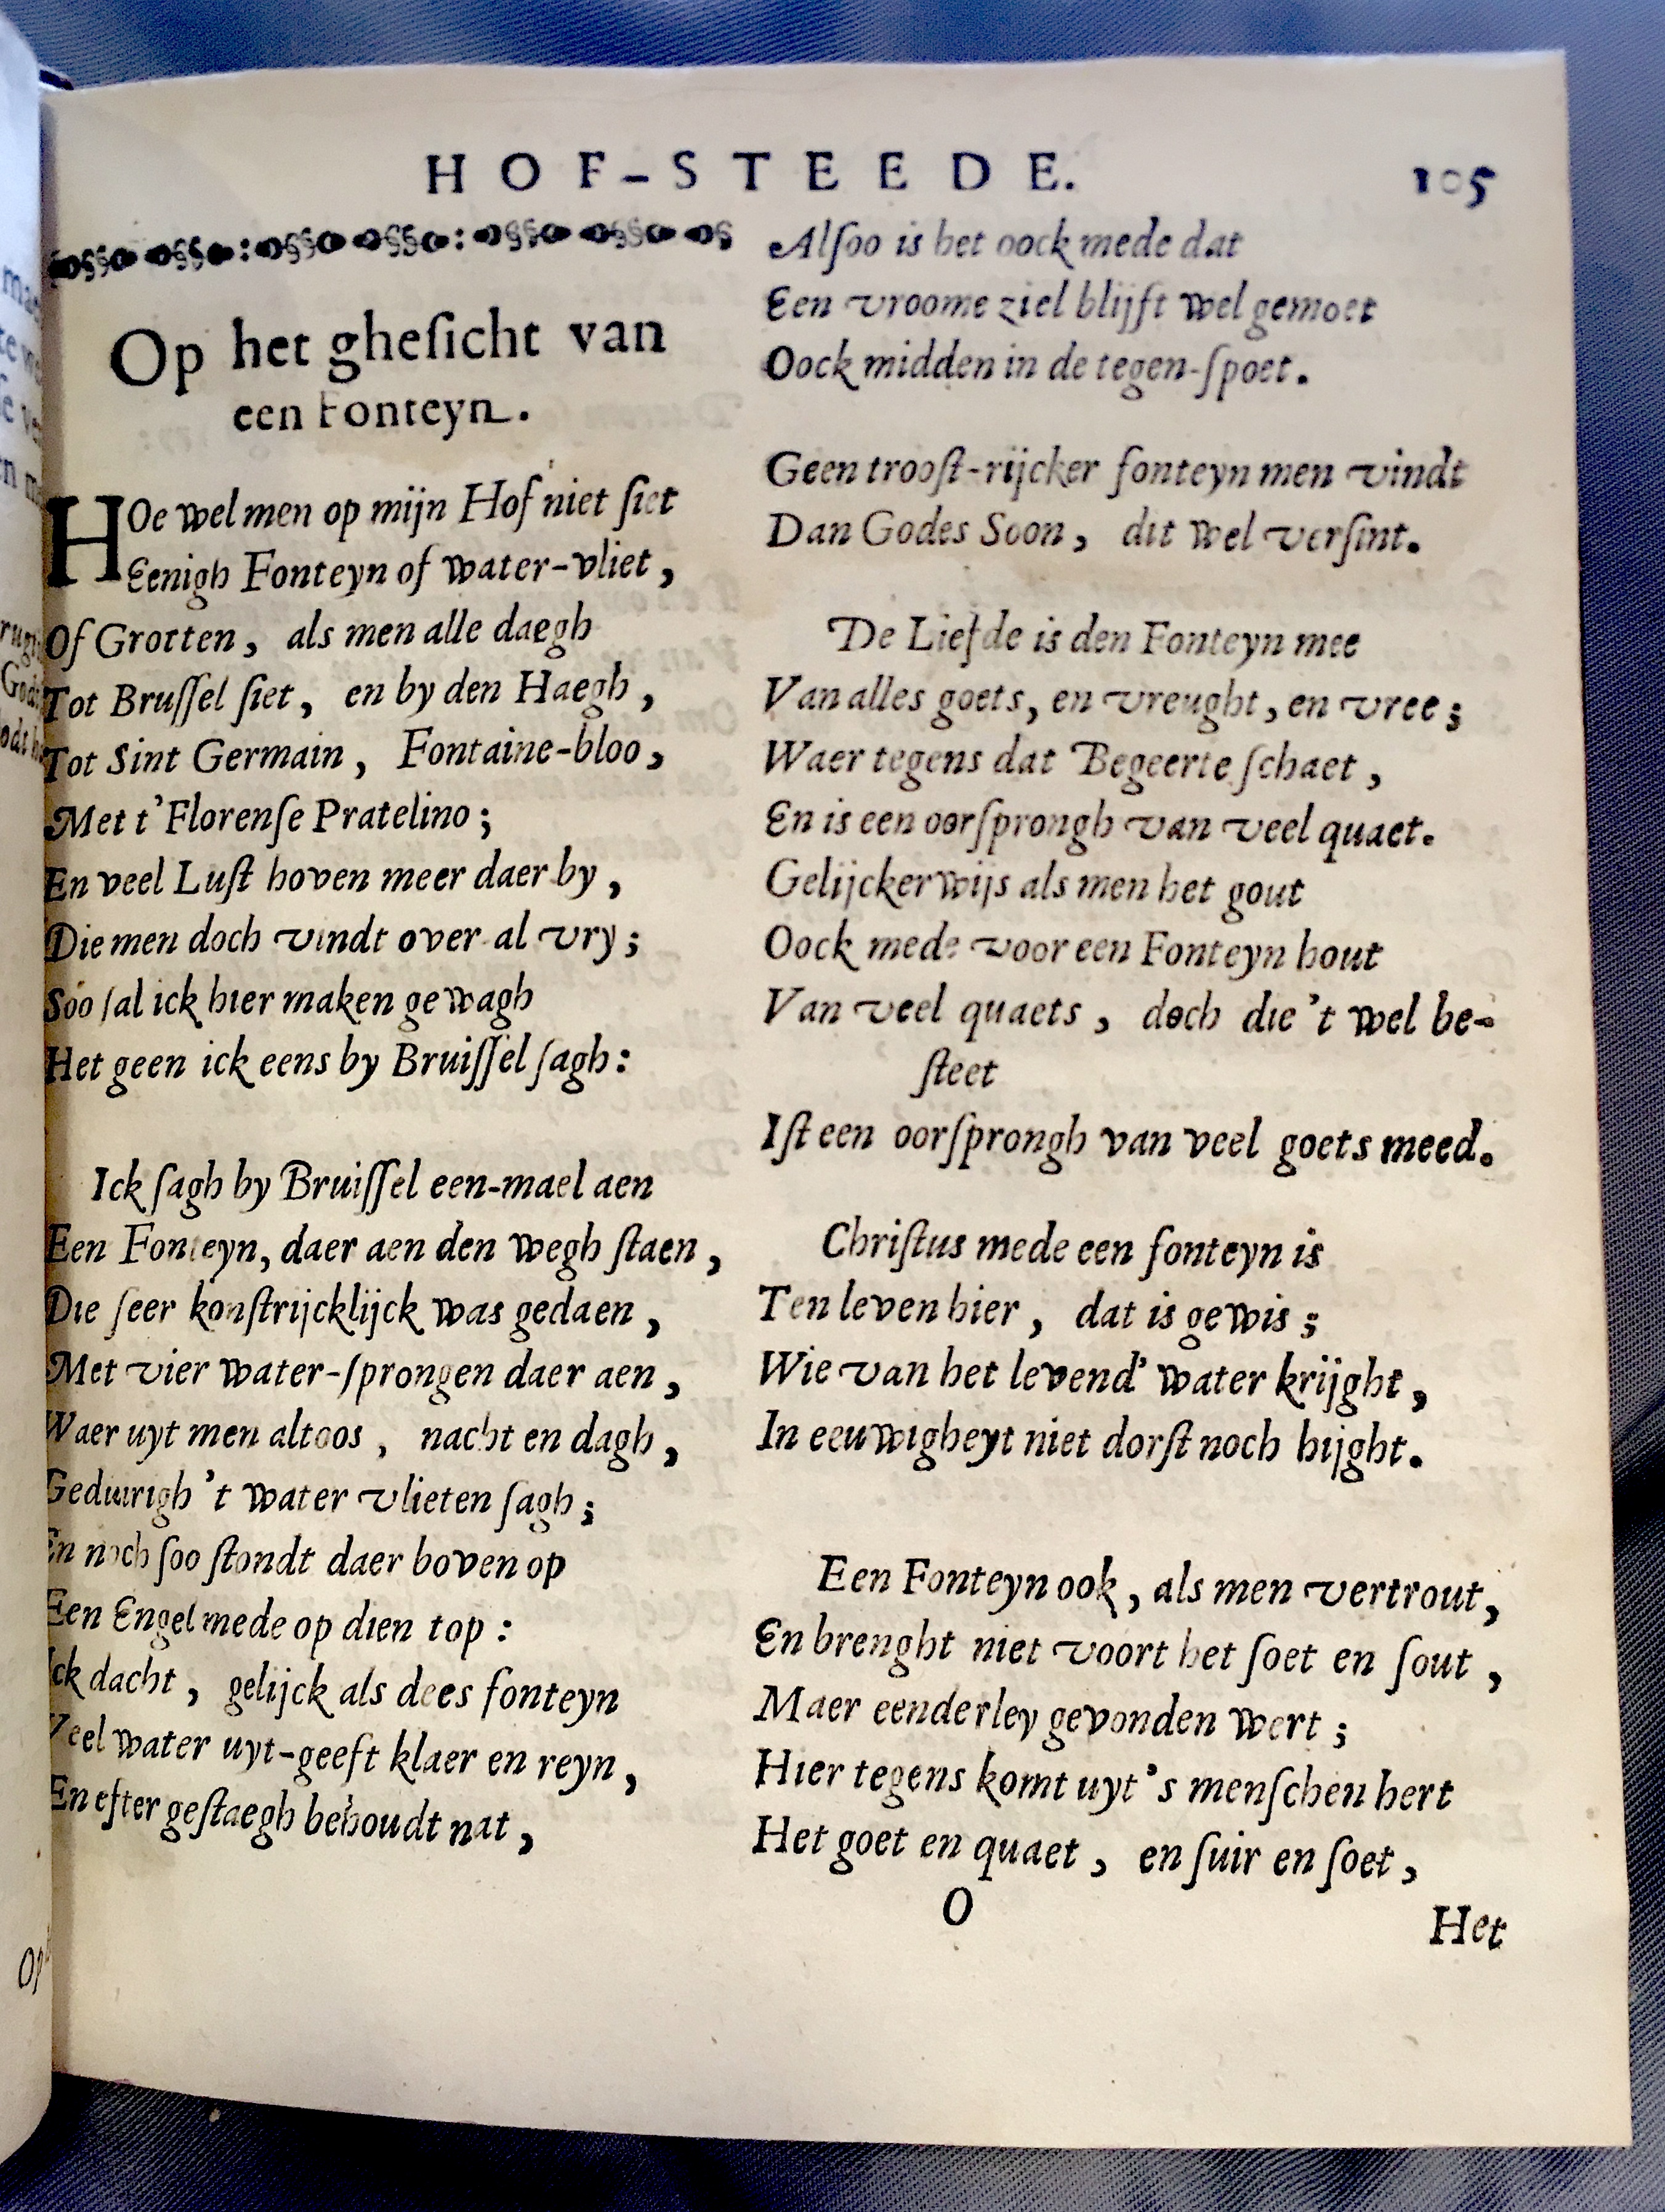 HOF-STEEDE. 105
Op het gheſicht van
een Fonteyn.
HOe wel men op mijn Hof niet ſiet
Eenigh Fonteyn of water-vliet,
Of Grotten, als men alle daegh
Tot Bruſſel ſiet, en by den Haegh,
Tot Sint Germain, Fontaine-bloo,
Met t'Florenſe Pratelino;
En veel Luſt hoven meer daer by,
Die men doch vindt over al vry;
Soo ſal ick hier maken gewagh
Het geen ick eens by Bruiſſel ſagh:
Ick ſagh by Bruiſſel een-mael aen
Een Fonteyn, daer aen den wegh ſtaen,
Die ſeer konſtrijcklijck was gedaen,
Met vier water-ſprongen daer aen,
Waer uyt men altoos, nacht en dagh,
Geduirigh 't water vlieten ſagh;
En noch ſoo ſtondt daer boven op
Een Engel mede op dien top:
Ick dacht, gelijck als dees fonteyn
Veel water uyt-geeft klaer en reyn,
En efter geſtaegh behoudt nat,
Alſoo is het oock mede dat
Een vroome ziel blijft wel gemoet
Oock midden in de tegen-ſpoet.
Geen trooſt-rijcker fonteyn men vindt
Dan Godes Soon, dit wel verſint.
De Liefde is den Fonteyn mee
Van alles goets, en vreught, en vree;
Waer tegens dat Begeerte ſchaet,
En is een oorſprongh van veel quaet.
Gelijckerwijs als men het gout
Oock mede voor een Fonteyn hout
Van veel quaets, doch die 't wel be-
ſteet
Iſt een oorſprongh van veel goets meed.
Chriſtus mede een fonteyn is
Ten leven hier, dat is gewis;
Wie van het levend' water krijght,
In eeuwigheyt niet dorſt noch hijght.
Een Fonteyn ook, als men vertrout,
En brenght niet voort het ſoet en ſout,
Maer eenderley gevonden wert;
Hier tegens komt uyt 's menſchen hert
Het goet en quaet, en ſuir en ſoet,
O
Het